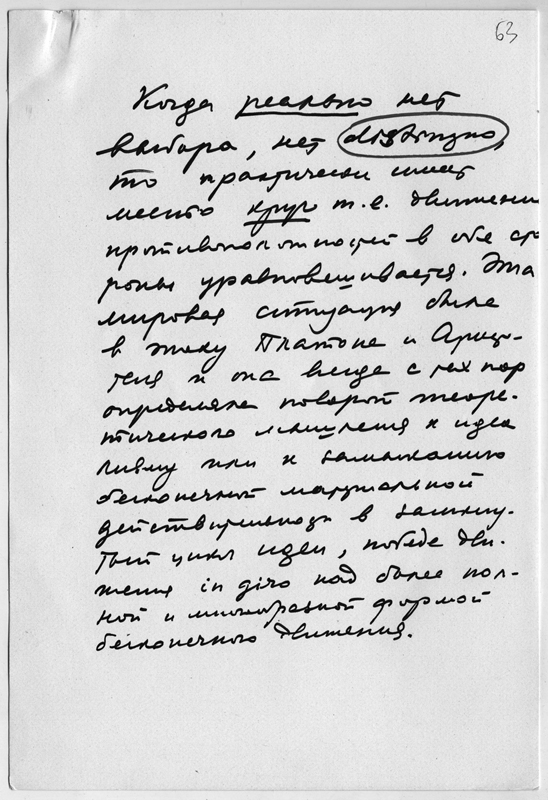 63
Когда реально нет
выбора, нет distinguo,
то практически имеет
место круг т.е. движение
противоположностей в обе сто
роны уравновешивается. Эта
мировая ситуация была
в эпоху Платона и Аристо-
теля и она всегда с тех пор
определяла поворот теоре-
тического мышления к идеа
лизму или к замыканию
бесконечной материальной
действительности в замкну-
тый цикл идеи, победе дви-
жения in giro над более пол-
ной и многообразной формой
бесконечного движения.